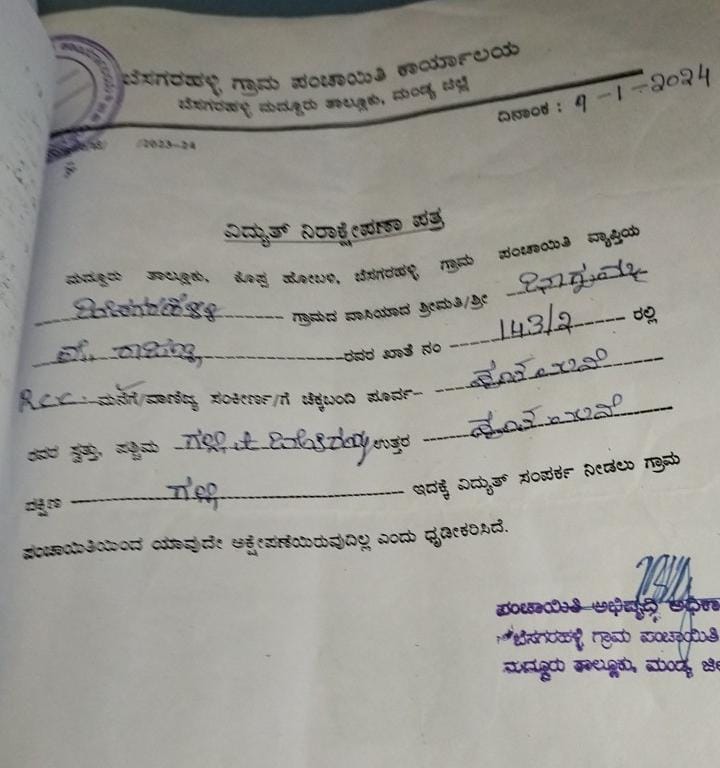 ಬೆಸಗರಹಳ್ಳಿ ಗ್ರಾಮ ಪಂಚಾಯಿತಿ ಕಾರ್ಯಾಲಯ
ಬೆಸಗರಹಳ್ಳಿ ಮದ್ದೂರು ತಾಲ್ಲೂಕು, ಮಂಡ್ಯ ಜಿಲ್ಲೆ
ದಿನಾಂಕ : 9-1-2024
/2023-24
ವಿದ್ಯುತ್ ನಿರಾಕ್ಷೇಪಣಾ ಪತ್ರ
ಮದ್ದೂರು ತಾಲ್ಲೂಕು, ಕೊಪ್ಪ ಹೋಬಳಿ, ಬೆಸಗರಹಳ್ಳಿ ಗ್ರಾಮ ಪಂಚಾಯಿತಿ ವ್ಯಾಪ್ತಿಯ
ಬೆಸಗರಹಳ್ಳಿ ಗ್ರಾಮದ ವಾಸಿಯಾದ ಶ್ರೀಮತಿ/ಶ್ರೀ
ರವರ ಖಾತೆ ನಂ 143/2 ರಲ್ಲಿ
RCC ಮನೆಗೆ/ವಾಣಿಜ್ಯ ಸಂಕೀರ್ಣ/ಗೆ ಚೆಕ್ಕುಬಂದಿ ಪೂರ್ವ
ರವರ ಸ್ವತ್ತು, ಪಶ್ಚಿಮ ಗಲ್ಲಿ ಉತ್ತರ
ದಕ್ಷಿಣ ಗಲ್ಲಿ ಇದಕ್ಕೆ ವಿದ್ಯುತ್ ಸಂಪರ್ಕ ನೀಡಲು ಗ್ರಾಮ
ಪಂಚಾಯಿತಿಯಿಂದ ಯಾವುದೇ ಆಕ್ಷೇಪಣೆಯಿರುವುದಿಲ್ಲ ಎಂದು ಧೃಡೀಕರಿಸಿದೆ.
ಪಂಚಾಯಿತಿ ಅಭಿವೃದ್ಧಿ ಅಧಿಕಾ
ಬೆಸಗರಹಳ್ಳಿ ಗ್ರಾಮ ಪಂಚಾಯಿತಿ
ಮದ್ದೂರು ತಾಲ್ಲೂಕು, ಮಂಡ್ಯ ಜಿಲ